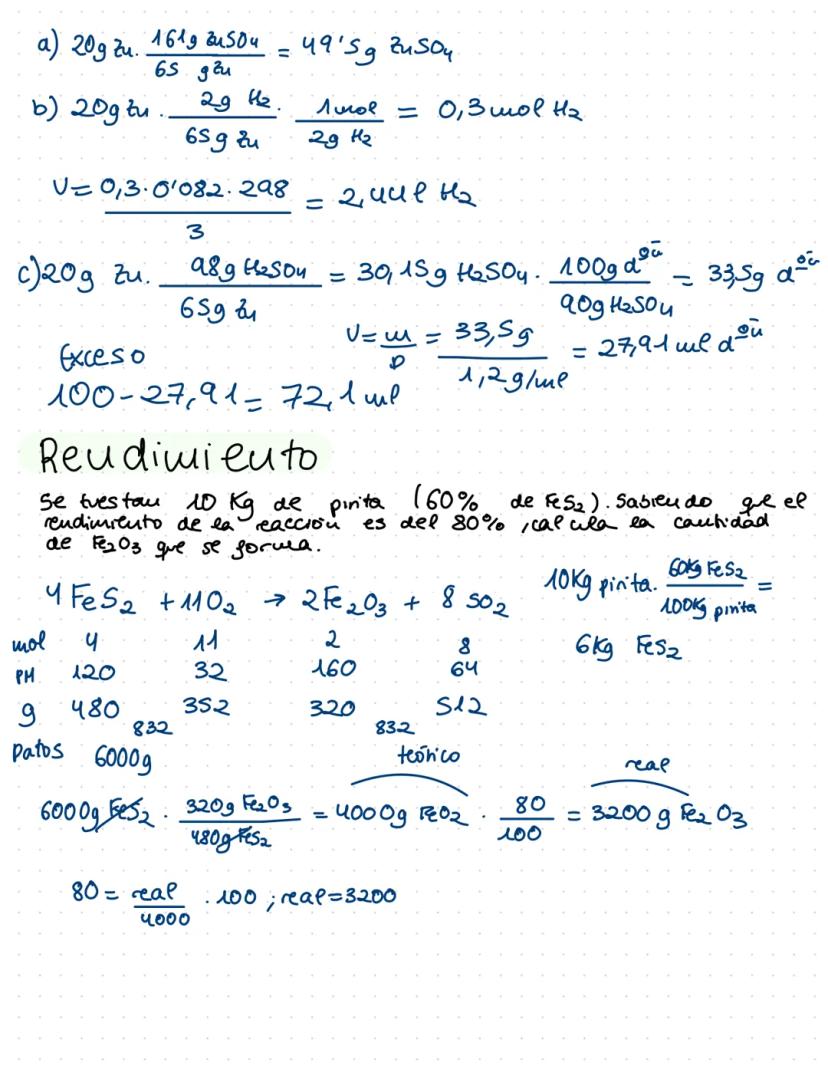 a) 20g Zn. 161g ZnSO4 / 65 g Zn = 49'5g ZnSO4
b) 20g Zn . 2g H2 / 65g Zn . 1mol / 2g H2 = 0,3mol H2
V= 0,3·0'082·298 / 3 = 2,44l H2
c) 20g Zn. 98g H2SO4 / 65g Zn = 30,15g H2SO4 · 100g dºn / 90g H2SO4 = 33,5g dºn
Exceso
V= m / D = 33,5g / 1,2g/ml = 27,91 ml dºn
100-27,91= 72,1 ml
Rendimiento
Se tuestan 10 Kg de pirita (60% de FeS2). Sabiendo que el
rendimiento de la reacción es del 80%, calcula la cantidad
de Fe2O3 que se forma.
4FeS2 +11O2 → 2Fe2O3 + 8 SO2
10Kg pirita. 60Kg FeS2 / 100Kg pirita =
6Kg FeS2
mol 4 11 2 8
PM 120 32 160 64
g 480 352 320 512
832 832
Datos 6000g
teórico real
6000g FeS2 · 320g Fe2O3 / 480g FeS2 = 4000g FeO2 · 80 / 100 = 3200 g Fe2O3
80= real / 4000 ·100 ; real=3200